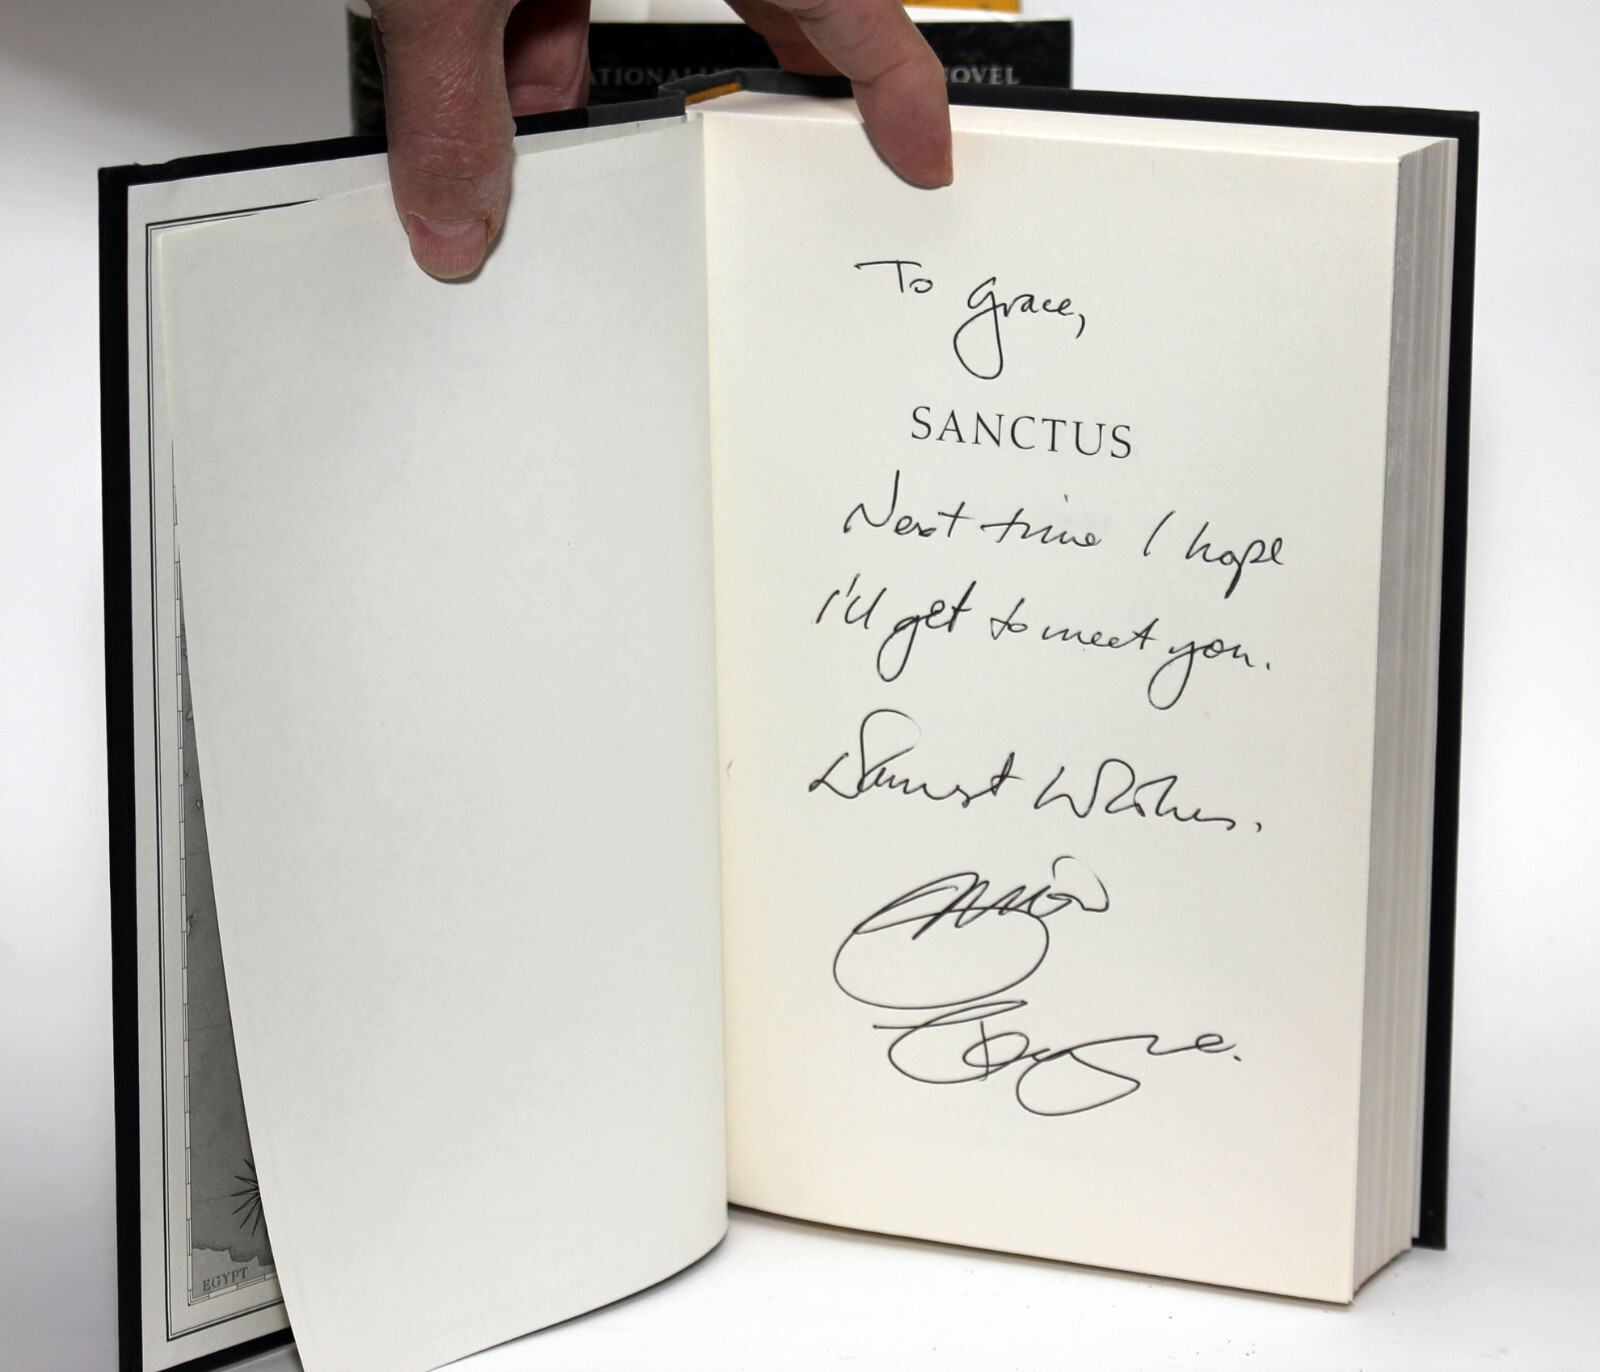 NOVEL
To Grace,
SANCTUS
Next time I hope
I'll get to meet you.
Warmest Wishes.
Simon
Toyne.
EGYPT